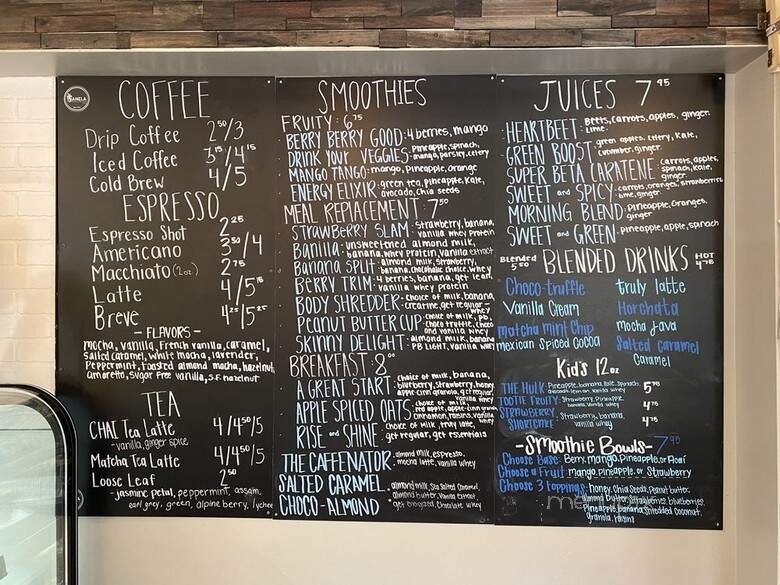 COFFEE
Drip Coffee 2⁵⁰/3
Iced Coffee 3¹⁵/4¹⁵
Cold Brew 4/5
ESPRESSO
Espresso Shot 2²⁵
Americano 3⁵⁰/4
Macchiato (2oz.) 2⁷⁵
Latte 4/5
Breve
- FLAVORS -
mocha, vanilla, french vanilla, caramel,
Salted caramel, white mocha, lavender,
Peppermint, toasted almond mocha, hazelnut,
amaretto, sugar free vanilla, S.F. hazelnut
TEA
CHAI Tea Latte 4/4⁵⁰/5
- vanilla, ginger spice
Matcha Tea Latte 4/4⁵⁰/5
Loose Leaf 2⁵⁰
- jasmine petal, peppermint, assam,
earl grey, green, alpine berry, lychee
SMOOTHIES
FRUITY: 6⁷⁵
BERRY BERRY GOOD: 4 berries, mango
DRINK YOUR VEGGIES: Pineapple, spinach,
mango, parsley, celery
MANGO TANGO: mango, pineapple, orange
ENERGY ELIXIR: green tea, pineapple, Kale,
avocado, Chia seeds
MEAL REPLACEMENT: 7⁵⁰
STRAWBERRY SLAM: Strawberry, banana,
vanilla whey Protein
Banilla: unsweetened almond milk,
banana, whey protein, vanilla extract
Banana Split: almond milk, strawberry,
banana, chocoholic choice, whey
BERRY TRIM: 4 berries, banana, get lean,
vanilla whey protein
BODY SHREDDER: choice of milk, banana,
creatine, get regular, whey
PEANUT BUTTER CUP: choice of milk, pb,
choco truffle, choco
and vanilla whey
SKINNY DELIGHT: almond milk, banana
PB LIGHT, Vanilla whey
BREAKFAST: 8⁰⁰
A GREAT START: Choice of milk, banana,
blueberry, strawberry, honey,
get regular,
vanilla whey
APPLE SPICED OATS: choice of milk,
red apple,
cinnamon, raisins, vanilla whey
RISE and SHINE: choice of milk, truly latte,
get regular, get essentials
THE CAFFENATOR: almond milk, espresso,
mocha latte, vanilla whey
SALTED CARAMEL: almond milk, Sea Salted Caramel,
almond butter, Vanilla extract
CHOCO-ALMOND get energized, Chocolate whey
JUICES 7⁹⁵
HEARTBEET: Beets, carrots, apples, ginger,
Lime
GREEN BOOST: green apples, celery, Kale,
cucumber, ginger
SUPER BETA CARATENE: carrots, apples,
spinach, kale,
ginger
SWEET and SPICY: carrots, oranges, strawberries
lime, ginger
MORNING BLEND: pineapple, oranges,
ginger
SWEET and GREEN: pineapple, apple, spinach
Blended 5⁵⁰ BLENDED DRINKS HOT 4⁷⁵
Choco-truffle truly latte
Vanilla Cream Horchata
matcha mint Chip mocha Java
mexican Spiced Cocoa Salted Caramel
Caramel
Kid's 12oz
THE HULK: Pineapple, banana, Kale, Spinach,
vanilla whey 5⁷⁵
TOOTIE FRUITY: Strawberry, Pineapple,
banana, Vanilla whey 4⁷⁵
STRAWBERRY SHORTCAKE: Strawberry, banana,
vanilla whey 4⁷⁵
-Smoothie Bowls- 7⁹⁵
Choose Base: Berry, mango, pineapple, or Acai
Choose a Fruit: mango, pineapple, or Strawberry
Choose 3 toppings: honey, Chia Seeds, Peanut butter,
almond butter, Strawberries, blueberries,
pineapple, banana, shredded coconut,
granola, raisins